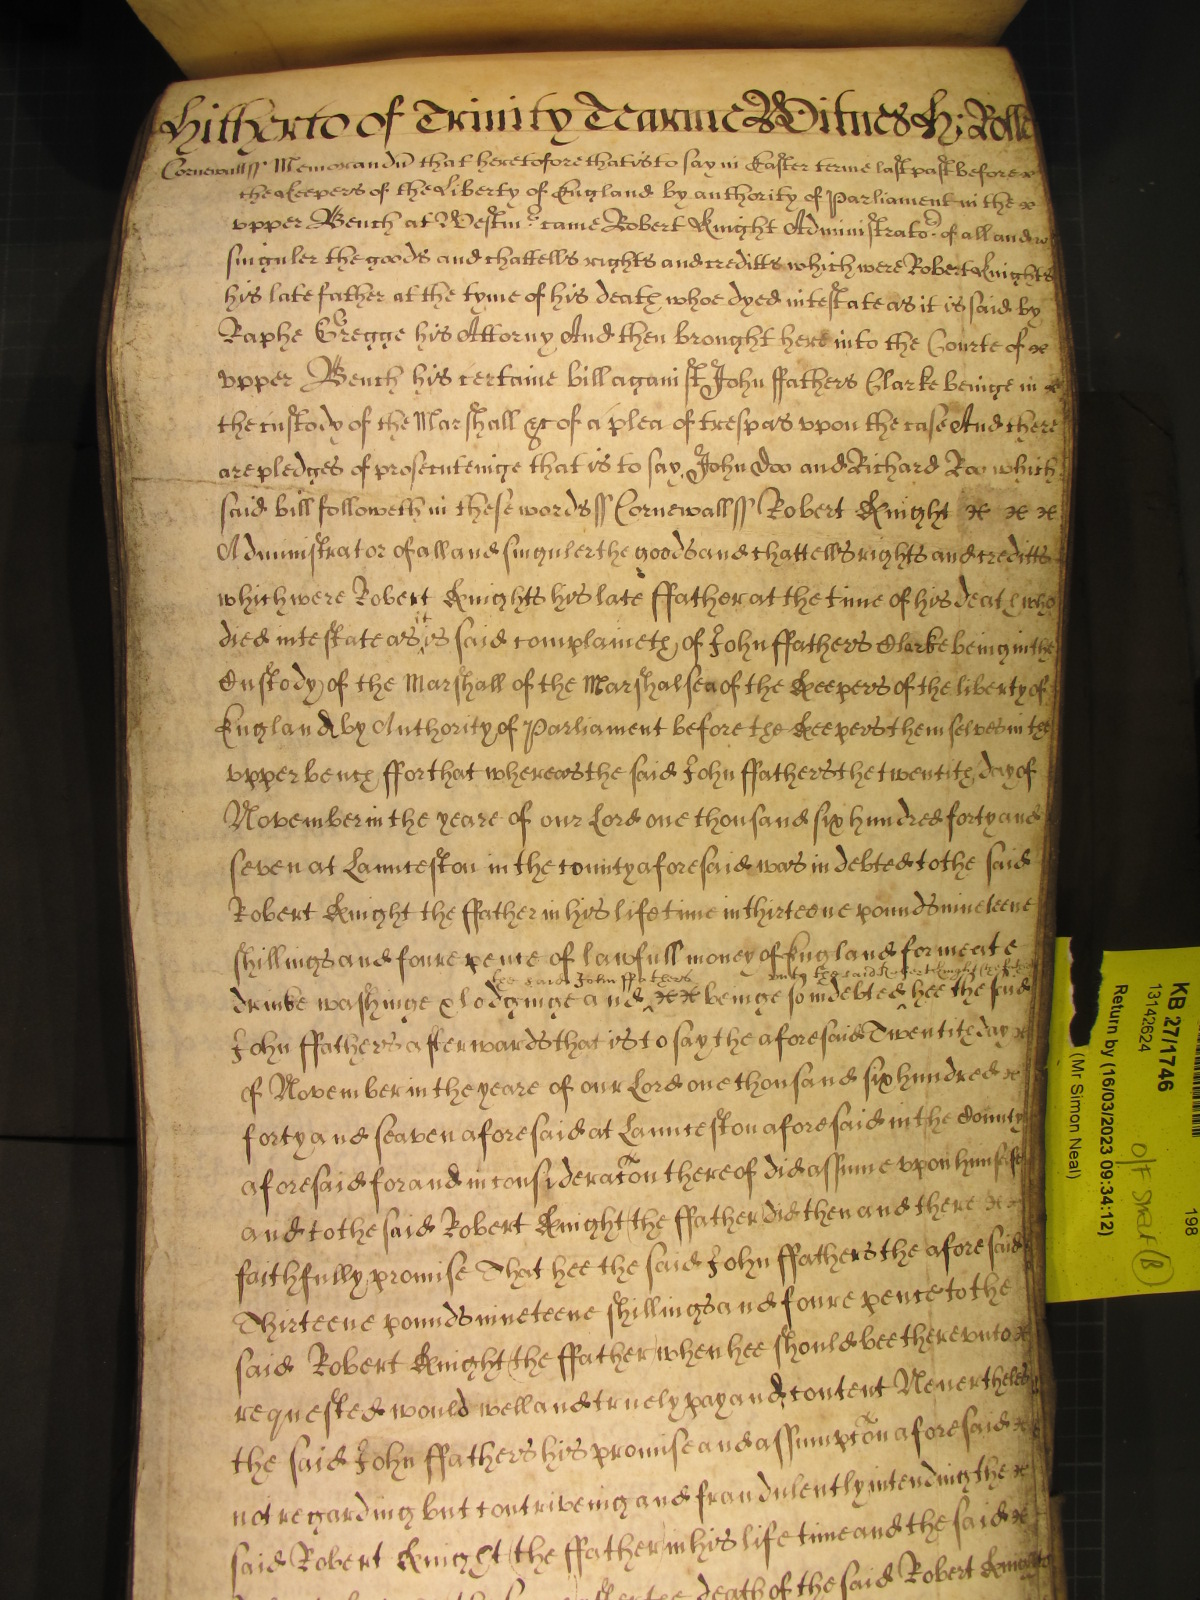 Hitherto of Trinity Tearme Witnes H: Rolle
Cornewall ss Memorandū that heretofore that is to say in Easter terme last past before
the Keepers of the Liberty of England by authority of Parliament in the
vpper Bench at Westmr came Robert Knight Administrator of all and
singuler the goods and chattells rights and creditts which were Robert Knights
his late father at the tyme of his death whoe dyed intestate as it is said by
Raphe Gregge his Attorny And then brought here into the Courte of
vpper Bench his certaine bill against John ffathers Clarke beinge in
the custody of the Marshall &c of a plea of trespas vpon the case And there
are pledges of prosecuteinge that is to say John Doo and Richard Roo which
said bill followeth in these words ss Cornewall ss Robert Knight
Administrator of all and singuler the goods and chattells rights and creditts
which were Robert Knights his late ffather at the time of his death who
died intestate as it is said complaineth of John ffathers Clarke being in the
Custody of the Marshall of the Marshalsea of the Keepers of the liberty of
England by Authority of Parliament before the Keepers themselves in the
vpper bench ffor that whereas the said John ffathers the twentith day of
November in the yeare of our Lord one thousand six hundred forty and
seven at Launceston in the county aforesaid was indebted to the said
Robert Knight the ffather in his life time in thirteene pounds nineteene
shillings and foure pence of lawfull money of England for meate
the said John ffathers vnto the said Robert Knight the
drinke washinge & lodginge and beinge so indebted hee the said
John ffathers afterwards that is to say the aforesaid Twentith day
of November in the yeare of our Lord one thousand six hundred
forty and seaven aforesaid at Launceston aforesaid in the County
aforesaid for and in consideracōn thereof did assume vpon himselfe
and to the said Robert Knight the ffather did then and there
faithfully promise That hee the said John ffathers the aforesaid
Thirteene pounds nineteene shillings and foure pence to the
said Robert Knight the ffather when hee should bee therevnto
requested would well and truely pay and content Neuertheles
the said John ffathers his promise and assumpcōn aforesaid
not regarding but contriveing and fraudulently intending the
said Robert Knight the ffather in his life time and the said
after the death of the said Robert Knight
KB 27/1746
13142624
198
Return by (16/03/2023 09:34:12)
(Mr Simon Neal)